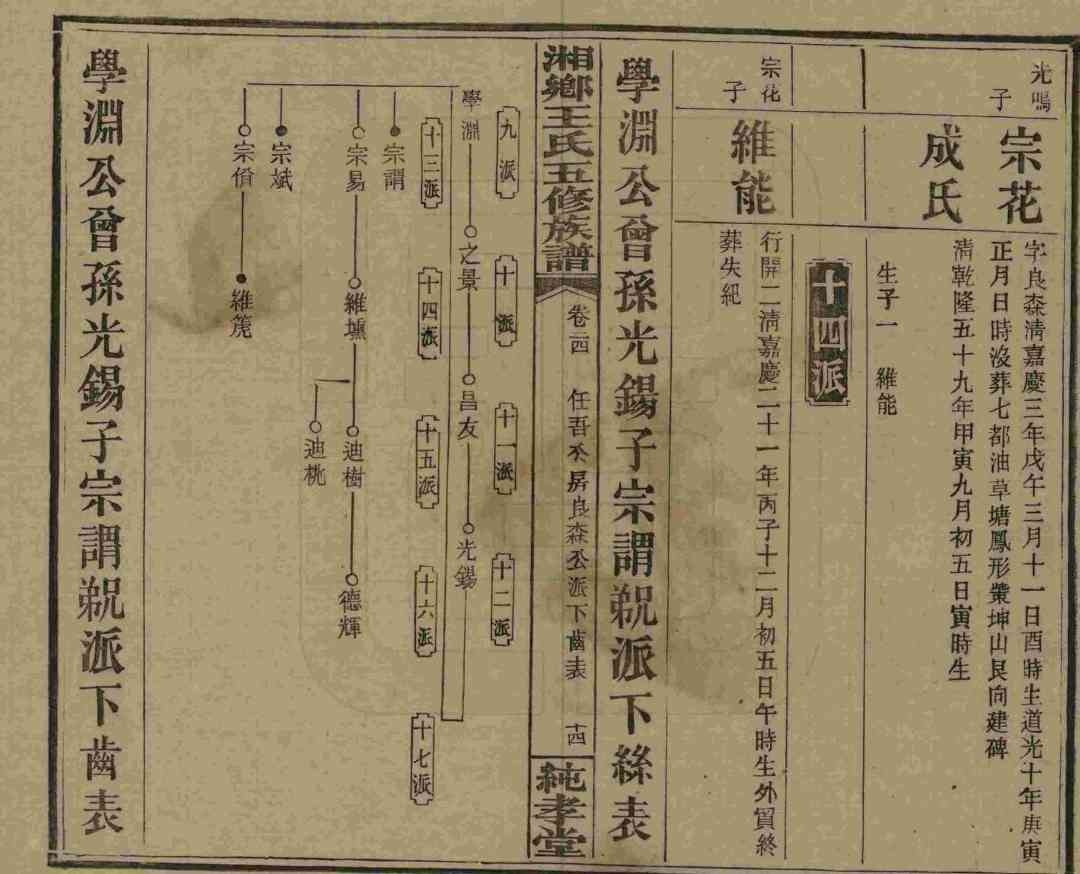 光鳴子
宗花
字良森清嘉慶三年戊午三月十一日酉時生道光十年庚寅
正月日時沒葬七都油草塘鳳形塋坤山艮向建碑
成氏
清乾隆五十九年甲寅九月初五日寅時生
生子一 維能
十四派
宗花子
維能
行開二清嘉慶二十一年丙子十二月初五日午時生外貿終
葬失紀
學淵公曾孫光錫子宗謂
派下絲表
湘鄉王氏五修族譜
卷二四 任吾公房良森公派下齒表 十四
純孝堂
九派
十派
十一派
十二派
學淵
之景
昌友
光錫
十三派
十四派
十五派
十六派
十七派
宗謂
宗易
維壎
迪樹
德輝
迪桃
宗斌
宗俏
維箎
學淵公曾孫光錫子宗謂
派下齒表